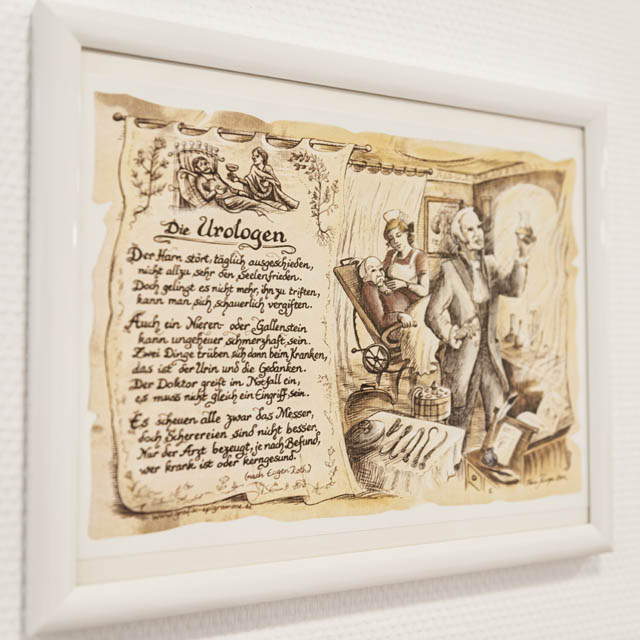 Die Urologen
Der Harn stört, täglich ausgeschieden,
nicht allzu sehr den Seelenfrieden.
Doch gelingt es nicht mehr, ihn zu triften,
kann man sich schauerlich vergiften.
Auch ein Nieren- oder Gallenstein
kann ungeheuer schmerzhaft sein.
Zwei Dinge trüben sich dann beim Kranken,
das ist der Urin und die Gedanken.
Der Doktor greift im Notfall ein,
es muss nicht gleich ein Eingriff sein.
Es scheuen alle zwar das Messer,
doch Scherereien sind nicht besser.
Nur der Arzt bezeugt, je nach Befund,
wer krank ist oder kerngesund.
(nach Eugen Roth)